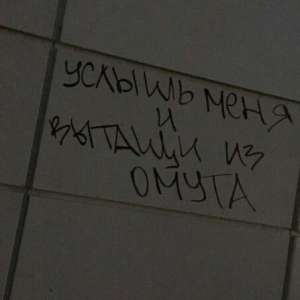 услышь меня
и
вытащи из
омута